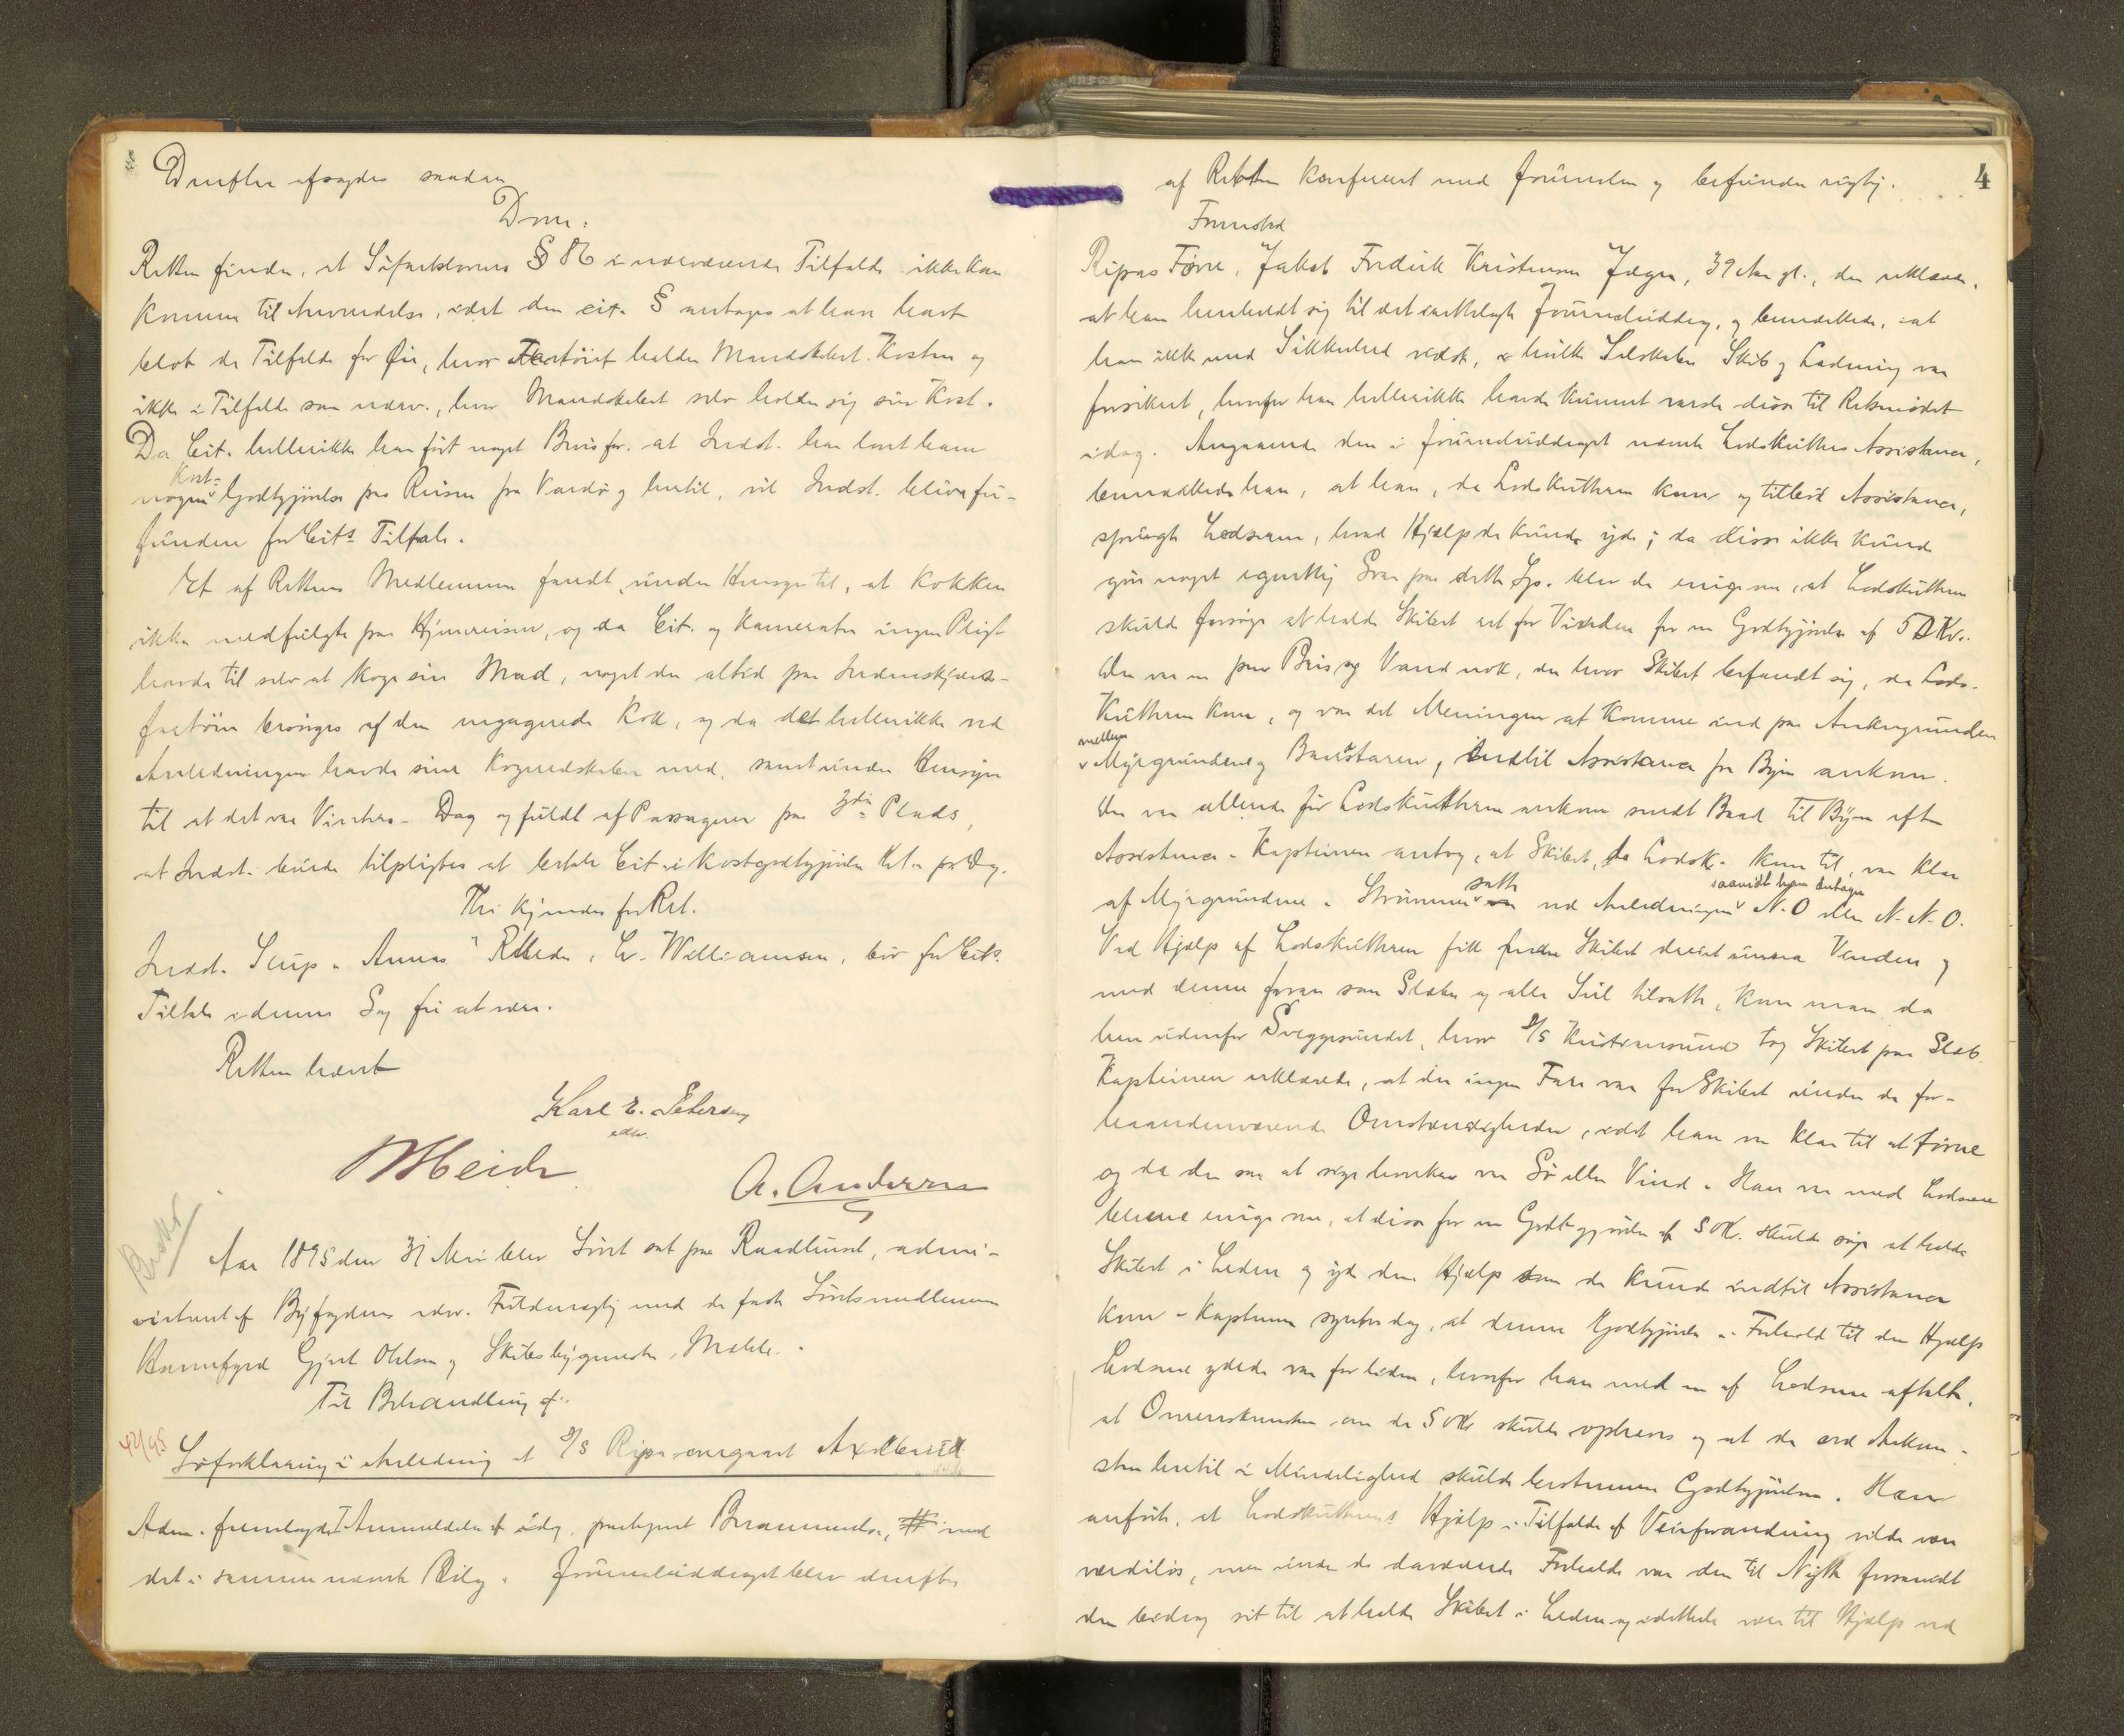 Derefter afsagdes saadan
Dom:
Retten finder, at Söfartslovens § 86 i nærværende Tilfælde ikke kan
komme til Anvendelse, idet den cit. § antages at have havt
blot de Tilfælde for Öie, hvor Fartöiet holder Mandskabet Kosten og
ikke i Tilfælde som nærv., hvor Mandskabet selv holder sig sin Kost.
Da Cit. hellerikke har fört noget Bevis for at Indst. har lovet ham
nogen Kost-Godtgjörelse paa Reisen fra Vardö og hertil, vil Indst. blive fri-
funden for Cits Tiltale.
Et af Rettens Medlemmer fandt under Hensyn til, at Kokken
ikke medfulgte paa Hjemreisen, og da Cit. og Kamerater ingen Pligt
havde til selv at koge sin Mad, noget der altid paa
fartöier besörges af den engagerede Kok, og da det hellerikke ved
Anledningen havde sine Kogeredskaber med, samt under Hensyn
til at det var Vinters-Dag og fuldt af Passagerer paa 3die Plads,
at Indst. burde tilpligtes at betale Cit. i Kostgodtgjörelse Kr. 1 pr Dag.
Thi kjendes for Ret.
Indst. Slup "Annas" Rheder, Chr. Williamsen, bör for Cits.
Tiltale i denne Sag fri at være.
Retten hævet
Karl E. Petersen
edsv.
A. Andersen
Aar 1895 den 31 Mai blev Söret sat paa Raadhuset, admi-
nistreret af Byfogdens edsv. Fuldmægtig med de faste Söretsmedlemmer
Havnefoged Gjert Ohlson og Skibsbygmester
Til Behandling af:
42/95 Söforklaring i Anledning af S/S Ripa overgaaet
Adm. fremlagde Anmeldelse af idag, paategnet Berammelse, med
det i samme nævnte Bilag. Journaluddraget blev derefter
4
af Retten konfereret med Journalen og befunden rigtig.
Fremstod
Ripas Förer, Jakob Fredrik Kristensen Jæger, 39 Aar gl., der erklærede,
at han henholdt sig til det fremlagte Journaluddrag, og bemærkede, at
han ikke med Sikkerhed vidste, i hvilke Selskaber Skib og Ladning var
forsikret, hvorfor han hellerikke havde kunnet varsle disse til Retsmödet
idag. Angaaende den i Journaluddraget nævnte Lodskutters Assistance,
bemærkede han, at han, da Lodskutteren kom og tilböd Assistance,
spurgte Lodserne, hvad Hjælp de kunde yde; da disse ikke kunde
give noget egentlig Svar paa dette Sp. blev de enige om, at Lodskutteren
skulde forsöge at holde Skibet op for Vinden for en Godtgjörelse af 50 Kr.
Der var en Bris og Vand nok, der hvor Skibet befandt sig, da Lods-
kutteren kom, og var det Meningen at komme ind paa Ankergrunden
mellem Myrgrundene og indtil Assistance fra Byen ankom.
Der var allerede för Lodskutteren ankom sendt Baad til Byen efter
Assistance. Kapteinen antog, at Skibet, da Lodsk. kom til, var klar
af Myrgrundene. Strömmen satte ved Anledningen saavidt han antager N.O eller N.N.O.
Ved Hjælp af Lodskutteren fik man Skibet dreiet unna Vinden og
med denne foran som Slæber og alle Seil tilsatte, kom man da
hen udenfor Sveggesundet, hvor S/S Kristiansund tog Skibet paa Slæb.
Kapteinen erklærede, at der ingen Fare var for Skibet under de for-
haandenværende Omstændigheder, idet han var klar til at
og da der saa at sige hverken var Sö eller Vind. Han var med Lodserne
blevne enige om, at disse for en Godtgjörelse af 50 Kr. skulde söge at holde
Skibet i Leden og yde den Hjælp som de kunde indtil Assistance
kom. Kapteinen syntes dog, at denne Godtgjörelse i Forhold til den Hjælp
Lodserne ydede var for liden, hvorfor han med en af Lodserne aftalte,
at Overenskomsten om de 50 Kr skulde ophæves og at de ved Ankom-
sten hertil i Mindelighed skulde bestemme Godtgjörelsen. Han
anförte, at Lodskutterens Hjælp i Tilfælde af Veirforandring vilde være
værdilös, men under de daværende Forholde var den til Nytte forsaavidt
den bidrog sit til at holde Skibet i Leden og idethele være til Hjælp ved